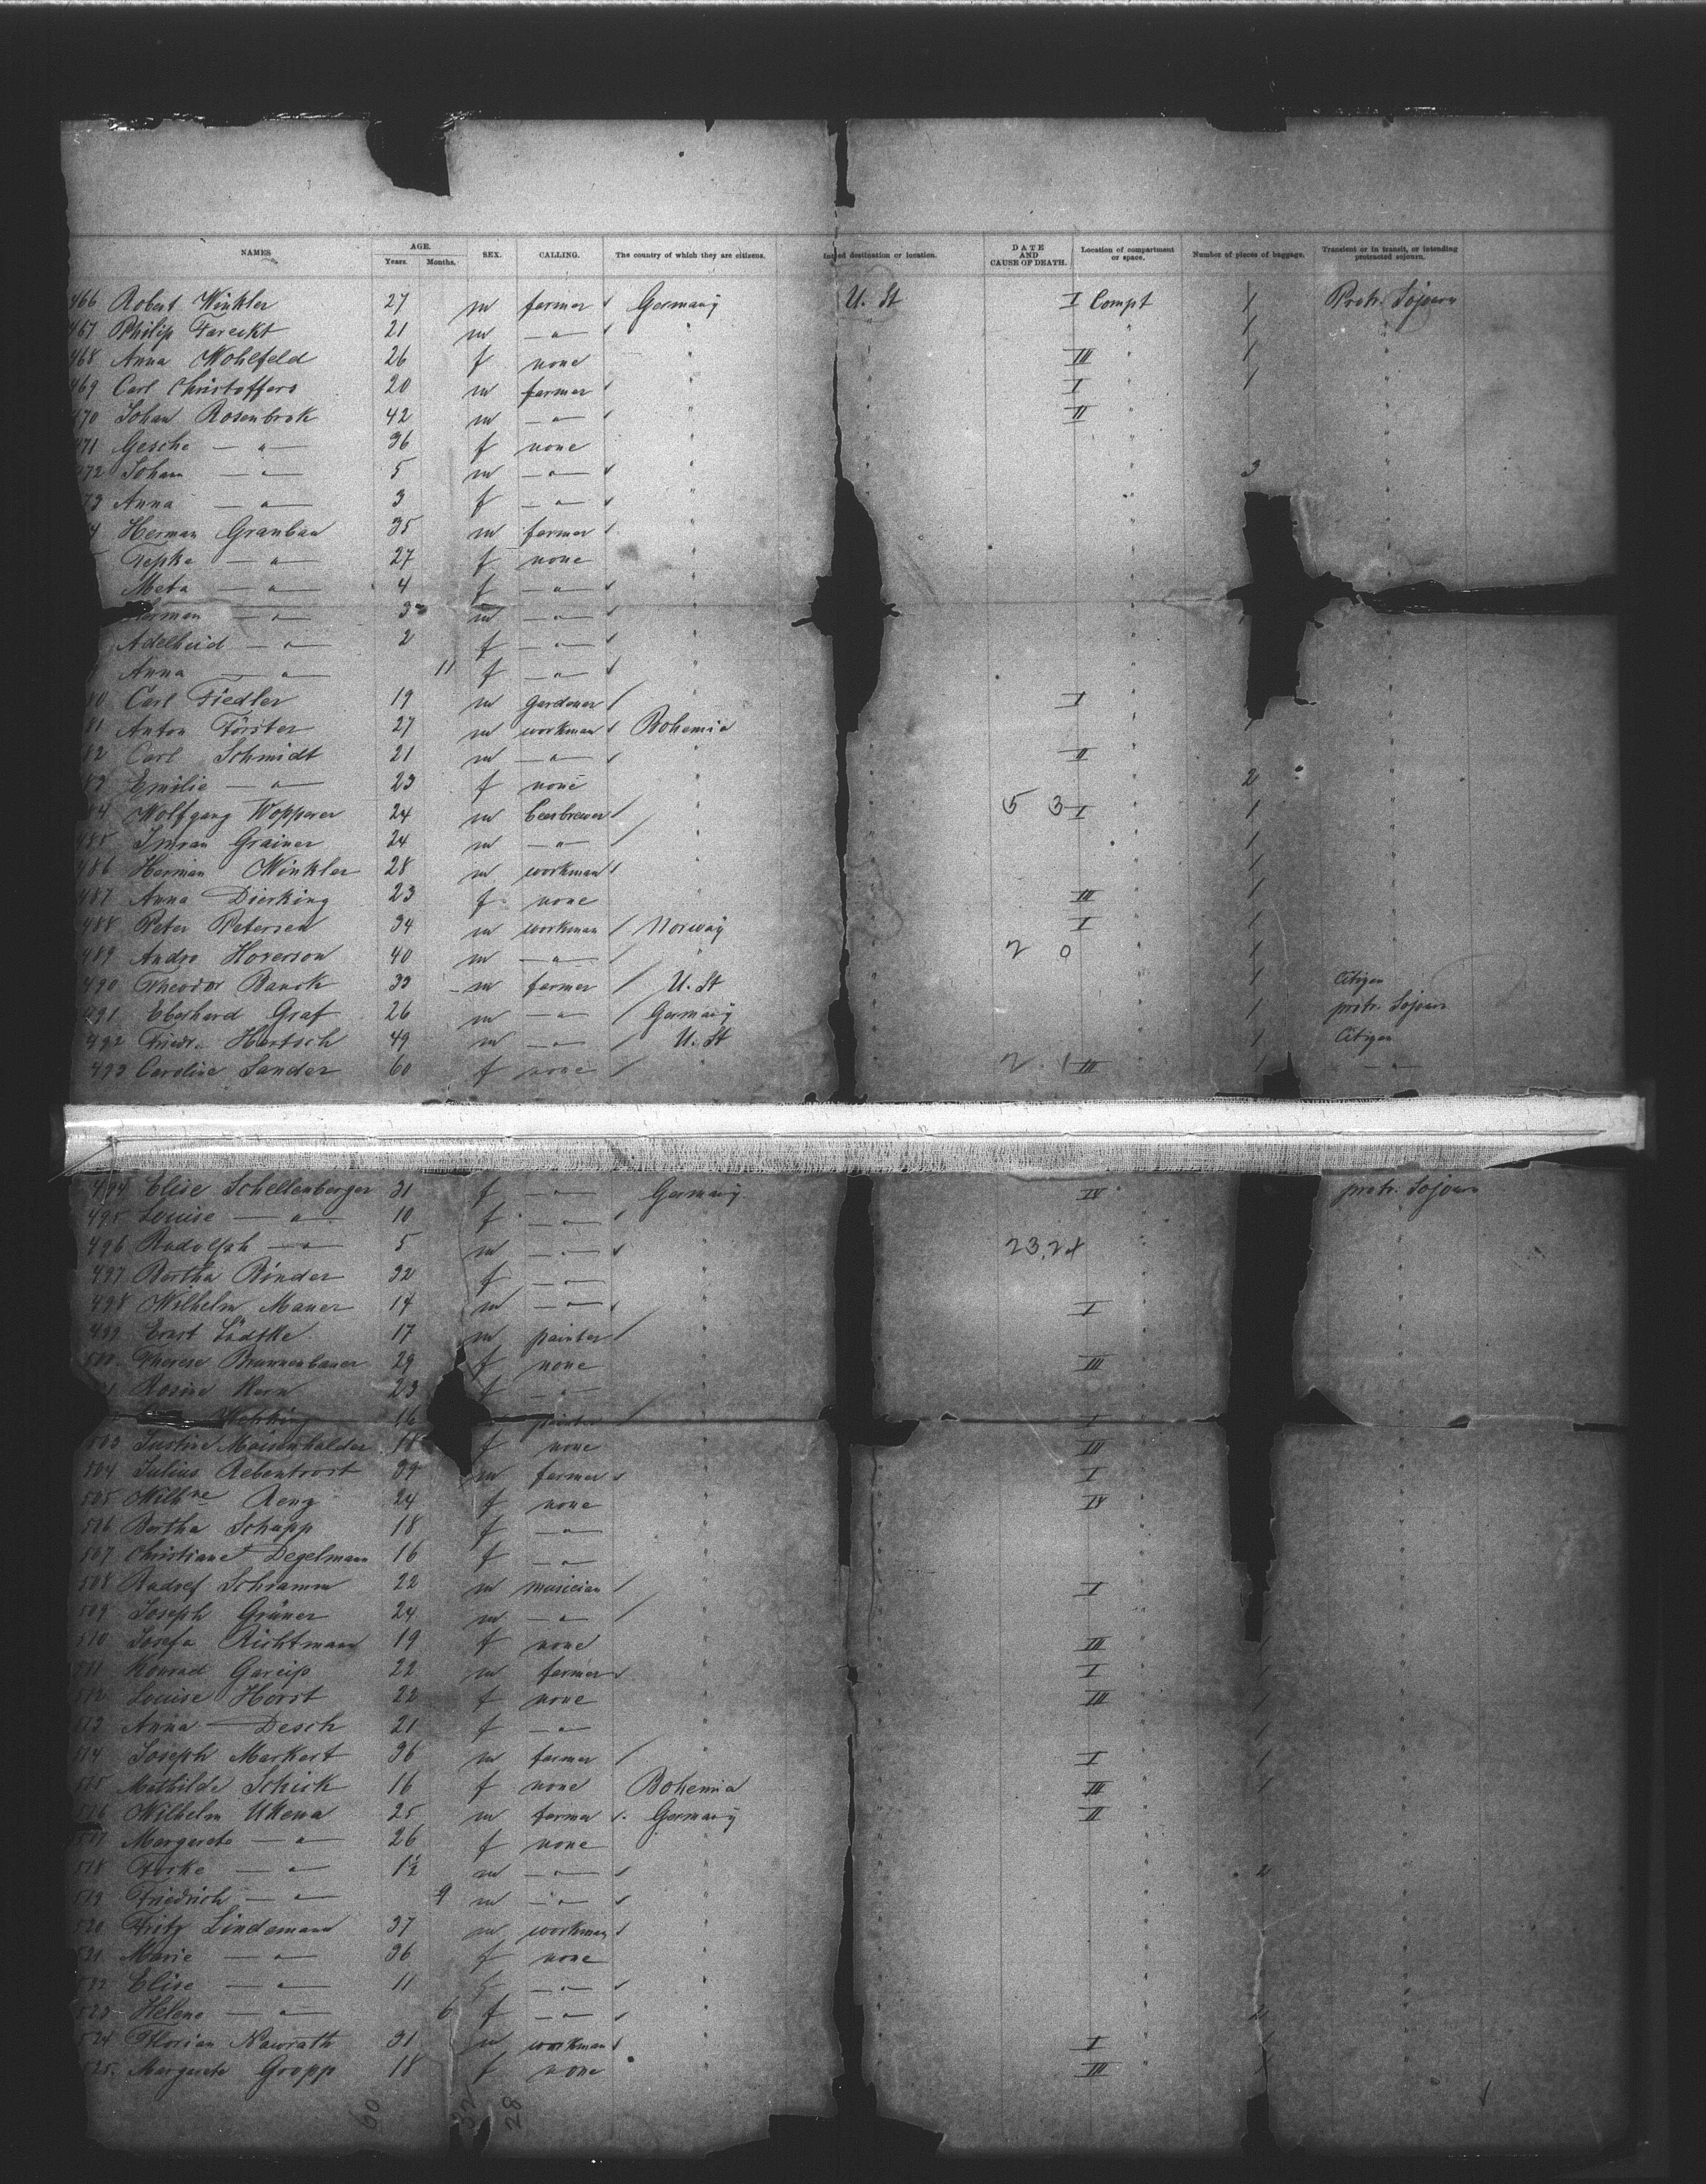 NAMES AGE. Years. Months. SEX. CALLING. The country of which they are citizens. destination or location. DATE AND CAUSE OF DEATH. Location of compartment or space. Number of pieces of baggage. Transient or in transit, or intending protracted sojourn.
466 Robert Winkler 27 m farmer Germany U. St I Compt 1 Protr. Sojourn
467 Philip 21 m —"— " " 1 "
468 Anna Wohlfeld 26 f none " " III " 1 "
469 Carl Christoffers 20 m farmer " " I " 1 "
470 Johan Rosenbrok 42 m —"— " " II " "
471 Gesche —"— 36 f none " " " "
472 Johann —"— 5 m —"— " " " 3 "
73 Anna —"— 3 f —"— " " " "
4 Herman Granbau 35 m farmer " " " "
Repke —"— 27 f none " " " "
Meta —"— 4 f —"— " " "
Herman —"— 3 m —"— " " "
Adelheid —"— 2 f —"— " " "
Anna —"— 11 f —"— " " "
80 Carl Fiedler 19 m gardener " " I " "
81 Anton Förster 27 m workman Bohemia " " 1 "
82 Carl Schmidt 21 m —"— " " II " "
83 Emilie —"— 23 f none " " " 2 "
84 Wolfgang Wopperer 24 m beerbrewer " " 5 3 I " 1 "
485 Grainer 24 m —"— " " " 1 "
486 Herman Winkler 28 m workman " " " 1 "
487 Anna Dierking 23 f none " " III " 1 "
488 Peter Petersen 34 m workman Norway " I " 1 "
489 Andro Hoverson 40 m —"— " " 2 0 " 1 "
490 Theodor Banck 33 m farmer U. St " " 1 Citizen
491 Eberhard Graf 26 m —"— Germany " " 1 protr. Sojourn
492 Friedr. Hartsch 49 m —"— U. St " " 1 Citizen
493 Caroline Sander 60 f none " " 2 1 III " 1 —"—
494 Elise Schellenberger 31 f —"— Germany IV " protr. Sojourn
495 Louise —"— 10 f —"— " " " "
496 Rudolph —"— 5 m —"— " " 23.24 " "
497 Bertha Binder 32 f —"— " " " "
498 Wilhelm Mauer 14 m —"— " " I " "
499 Ernst Lüdtke 17 m painter " " " "
500 Therese Brunnenbauer 29 f none " " III " "
1 Rosine Kern 23 f —"— " " " "
16 painter " I " "
503 Justine 18 f none " " III " "
504 Julius Rebentrost 34 m farmer " " I " "
505 Wilhne Reng 24 f none " " IV " "
506 Bertha Schupp 18 f —"— " " " "
507 Christiane Degelmann 16 f —"— " " " "
508 Rudolf Schramm 22 m musician " " I " "
509 Joseph Grüner 24 m —"— " " " "
510 Josefa Richtmann 19 f none " " III " 1 "
511 Konrad Gareis 22 m farmer " " I " 1 "
512 Louise Horst 22 f none " " III " 1 "
513 Anna Desch 21 f —"— " " " 1 "
514 Joseph Markert 36 m farmer " " I " 1 "
515 Mathilde Schick 16 f none Bohemia " III " 1 "
516 Wilhelm Ukena 25 m farmer Germany " II " "
517 Margarete —"— 26 f none " " " "
518 Focke —"— 1½ m —"— " " " 2 "
519 Friedrich —"— 9 m —"— " " " "
520 Fritz Lindemann 37 m workman " " " "
521 Marie —"— 36 f none " " " "
522 Elise —"— 11 f —"— " " " "
523 Helene —"— 6 f —"— " " " 2 "
524 Florian Nawrath 31 m workman " " I " 1 "
525. Margarete Gropp 18 f none " III " 1 "
60 32 28